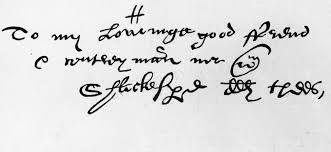 H
To my Loveinge good ffrend
& contreymann mr wm
Shackespe dlr thees,